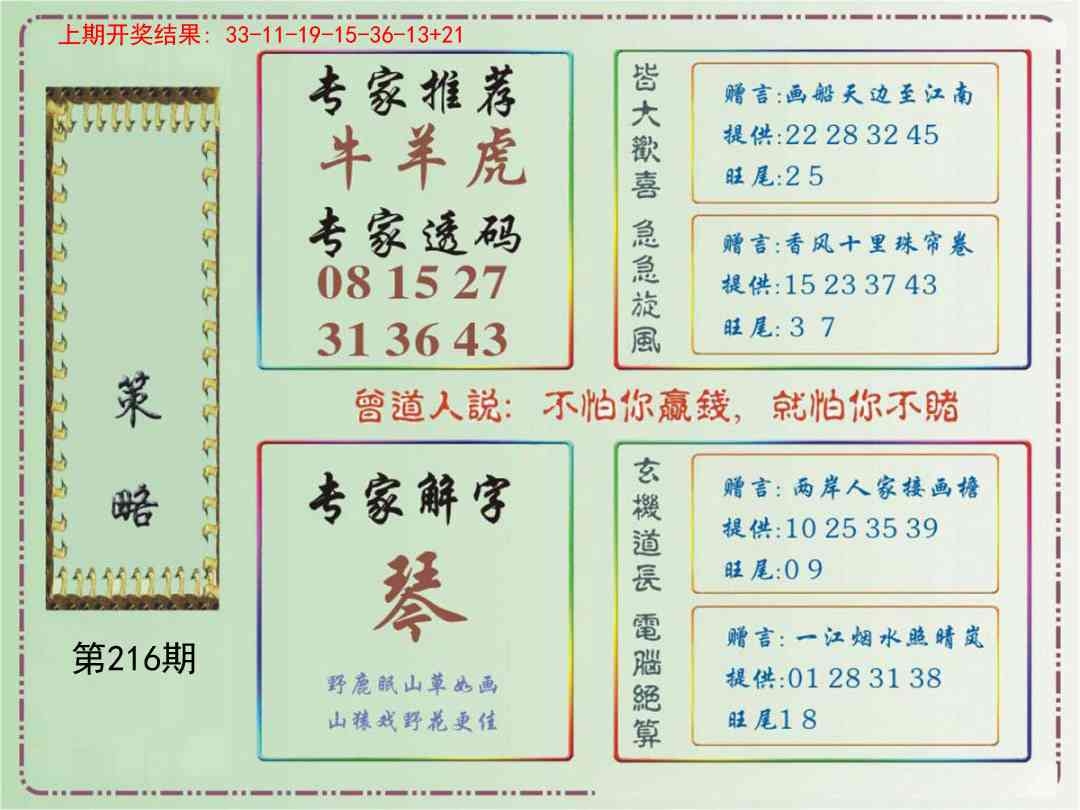 上期开奖结果：33-11-19-15-36-13+21
策略
第216期
专家推荐
牛羊虎
专家透码
08 15 27
31 36 43
皆大歡喜
赠言:画船天边至江南
提供:22 28 32 45
旺尾:2 5
急急旋風
赠言:香风十里珠帘卷
提供:15 23 37 43
旺尾: 3 7
曾道人説：不怕你赢錢，就怕你不賭
专家解字
琴
野鹿眠山草如画
山猿戏野花更佳
玄機道長
赠言：两岸人家接画檐
提供:10 25 35 39
旺尾:0 9
電腦絕算
赠言：一江烟水照晴岚
提供:01 28 31 38
旺尾1 8